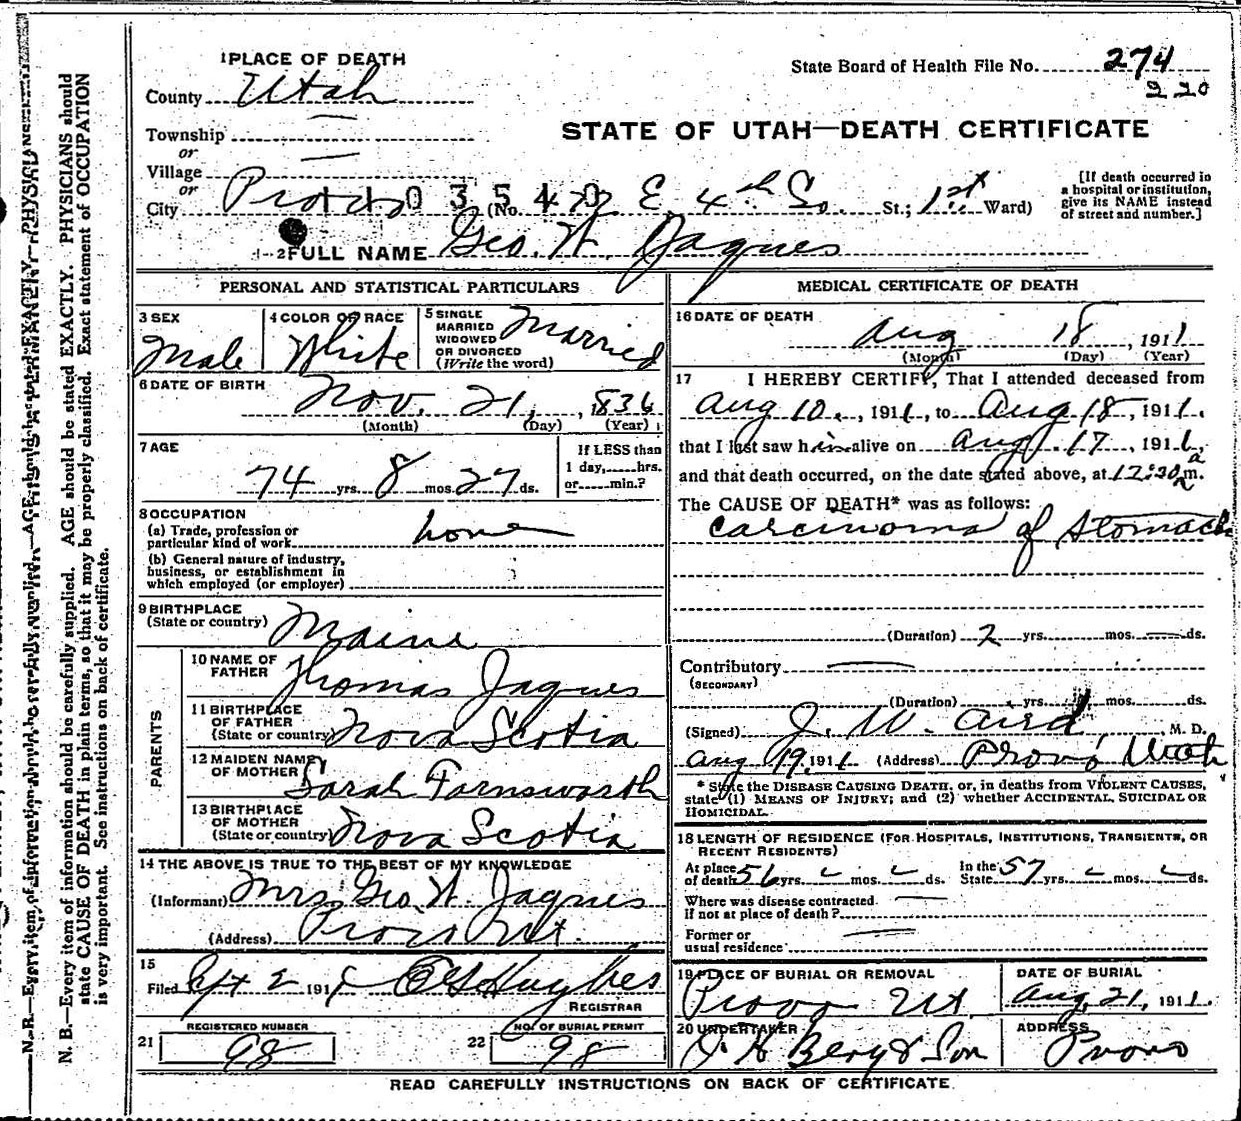 1 PLACE OF DEATH
State Board of Health File No. 274
220
County Utah
STATE OF UTAH—DEATH CERTIFICATE
Township
or
Village
or
City Provo (No. E 4th So. St.; 1st Ward)
[If death occurred in a hospital or institution, give its NAME instead of street and number.]
2 FULL NAME Geo. W. Jaques
PERSONAL AND STATISTICAL PARTICULARS
3 SEX Male
4 COLOR OR RACE White
5 SINGLE MARRIED WIDOWED OR DIVORCED (Write the word) Married
6 DATE OF BIRTH Nov. 21, 1836
(Month) (Day) (Year)
7 AGE 74 yrs. 8 mos. 27 ds.
If LESS than 1 day,......hrs. or......min.?
8 OCCUPATION
(a) Trade, profession or particular kind of work
(b) General nature of industry, business, or establishment in which employed (or employer)
9 BIRTHPLACE (State or country) Maine
PARENTS
10 NAME OF FATHER Thomas Jaques
11 BIRTHPLACE OF FATHER (State or country) Nova Scotia
12 MAIDEN NAME OF MOTHER Sarah Farnsworth
13 BIRTHPLACE OF MOTHER (State or country) Nova Scotia
14 THE ABOVE IS TRUE TO THE BEST OF MY KNOWLEDGE
(Informant) Mrs. Geo. W. Jaques
(Address) Provo Ut.
15
Filed 2 191 Hughes
REGISTRAR
REGISTERED NUMBER
21 98
NO. OF BURIAL PERMIT
22 98
MEDICAL CERTIFICATE OF DEATH
16 DATE OF DEATH
Aug 18, 1911
(Month) (Day) (Year)
17 I HEREBY CERTIFY, That I attended deceased from
Aug 10, 1911, to Aug 18, 1911.
that I last saw him alive on Aug. 17, 1911,
and that death occurred, on the date stated above, at 12:30 a m.
The CAUSE OF DEATH* was as follows:
Carcinoma of Stomach
(Duration) 2 yrs. mos. ds.
Contributory
(SECONDARY)
(Duration) yrs. mos. ds.
(Signed) J. W. Aird, M. D.
Aug 19, 1911 (Address) Provo, Utah
* State the DISEASE CAUSING DEATH, or, in deaths from VIOLENT CAUSES, state (1) MEANS OF INJURY; and (2) whether ACCIDENTAL, SUICIDAL OR HOMICIDAL.
18 LENGTH OF RESIDENCE (FOR HOSPITALS, INSTITUTIONS, TRANSIENTS, OR RECENT RESIDENTS)
At place of death 56 yrs. mos. ds. In the State 57 yrs. mos. ds.
Where was disease contracted if not at place of death?
Former or usual residence
19 PLACE OF BURIAL OR REMOVAL Provo Ut.
DATE OF BURIAL Aug. 21, 1911.
20 UNDERTAKER Berg & Son
ADDRESS Provo
READ CAREFULLY INSTRUCTIONS ON BACK OF CERTIFICATE
N. B.—Every item of information should be carefully supplied. AGE should be stated EXACTLY. PHYSICIANS should
state CAUSE OF DEATH in plain terms, so that it may be properly classified. Exact statement of OCCUPATION
is very important. See instructions on back of certificate.